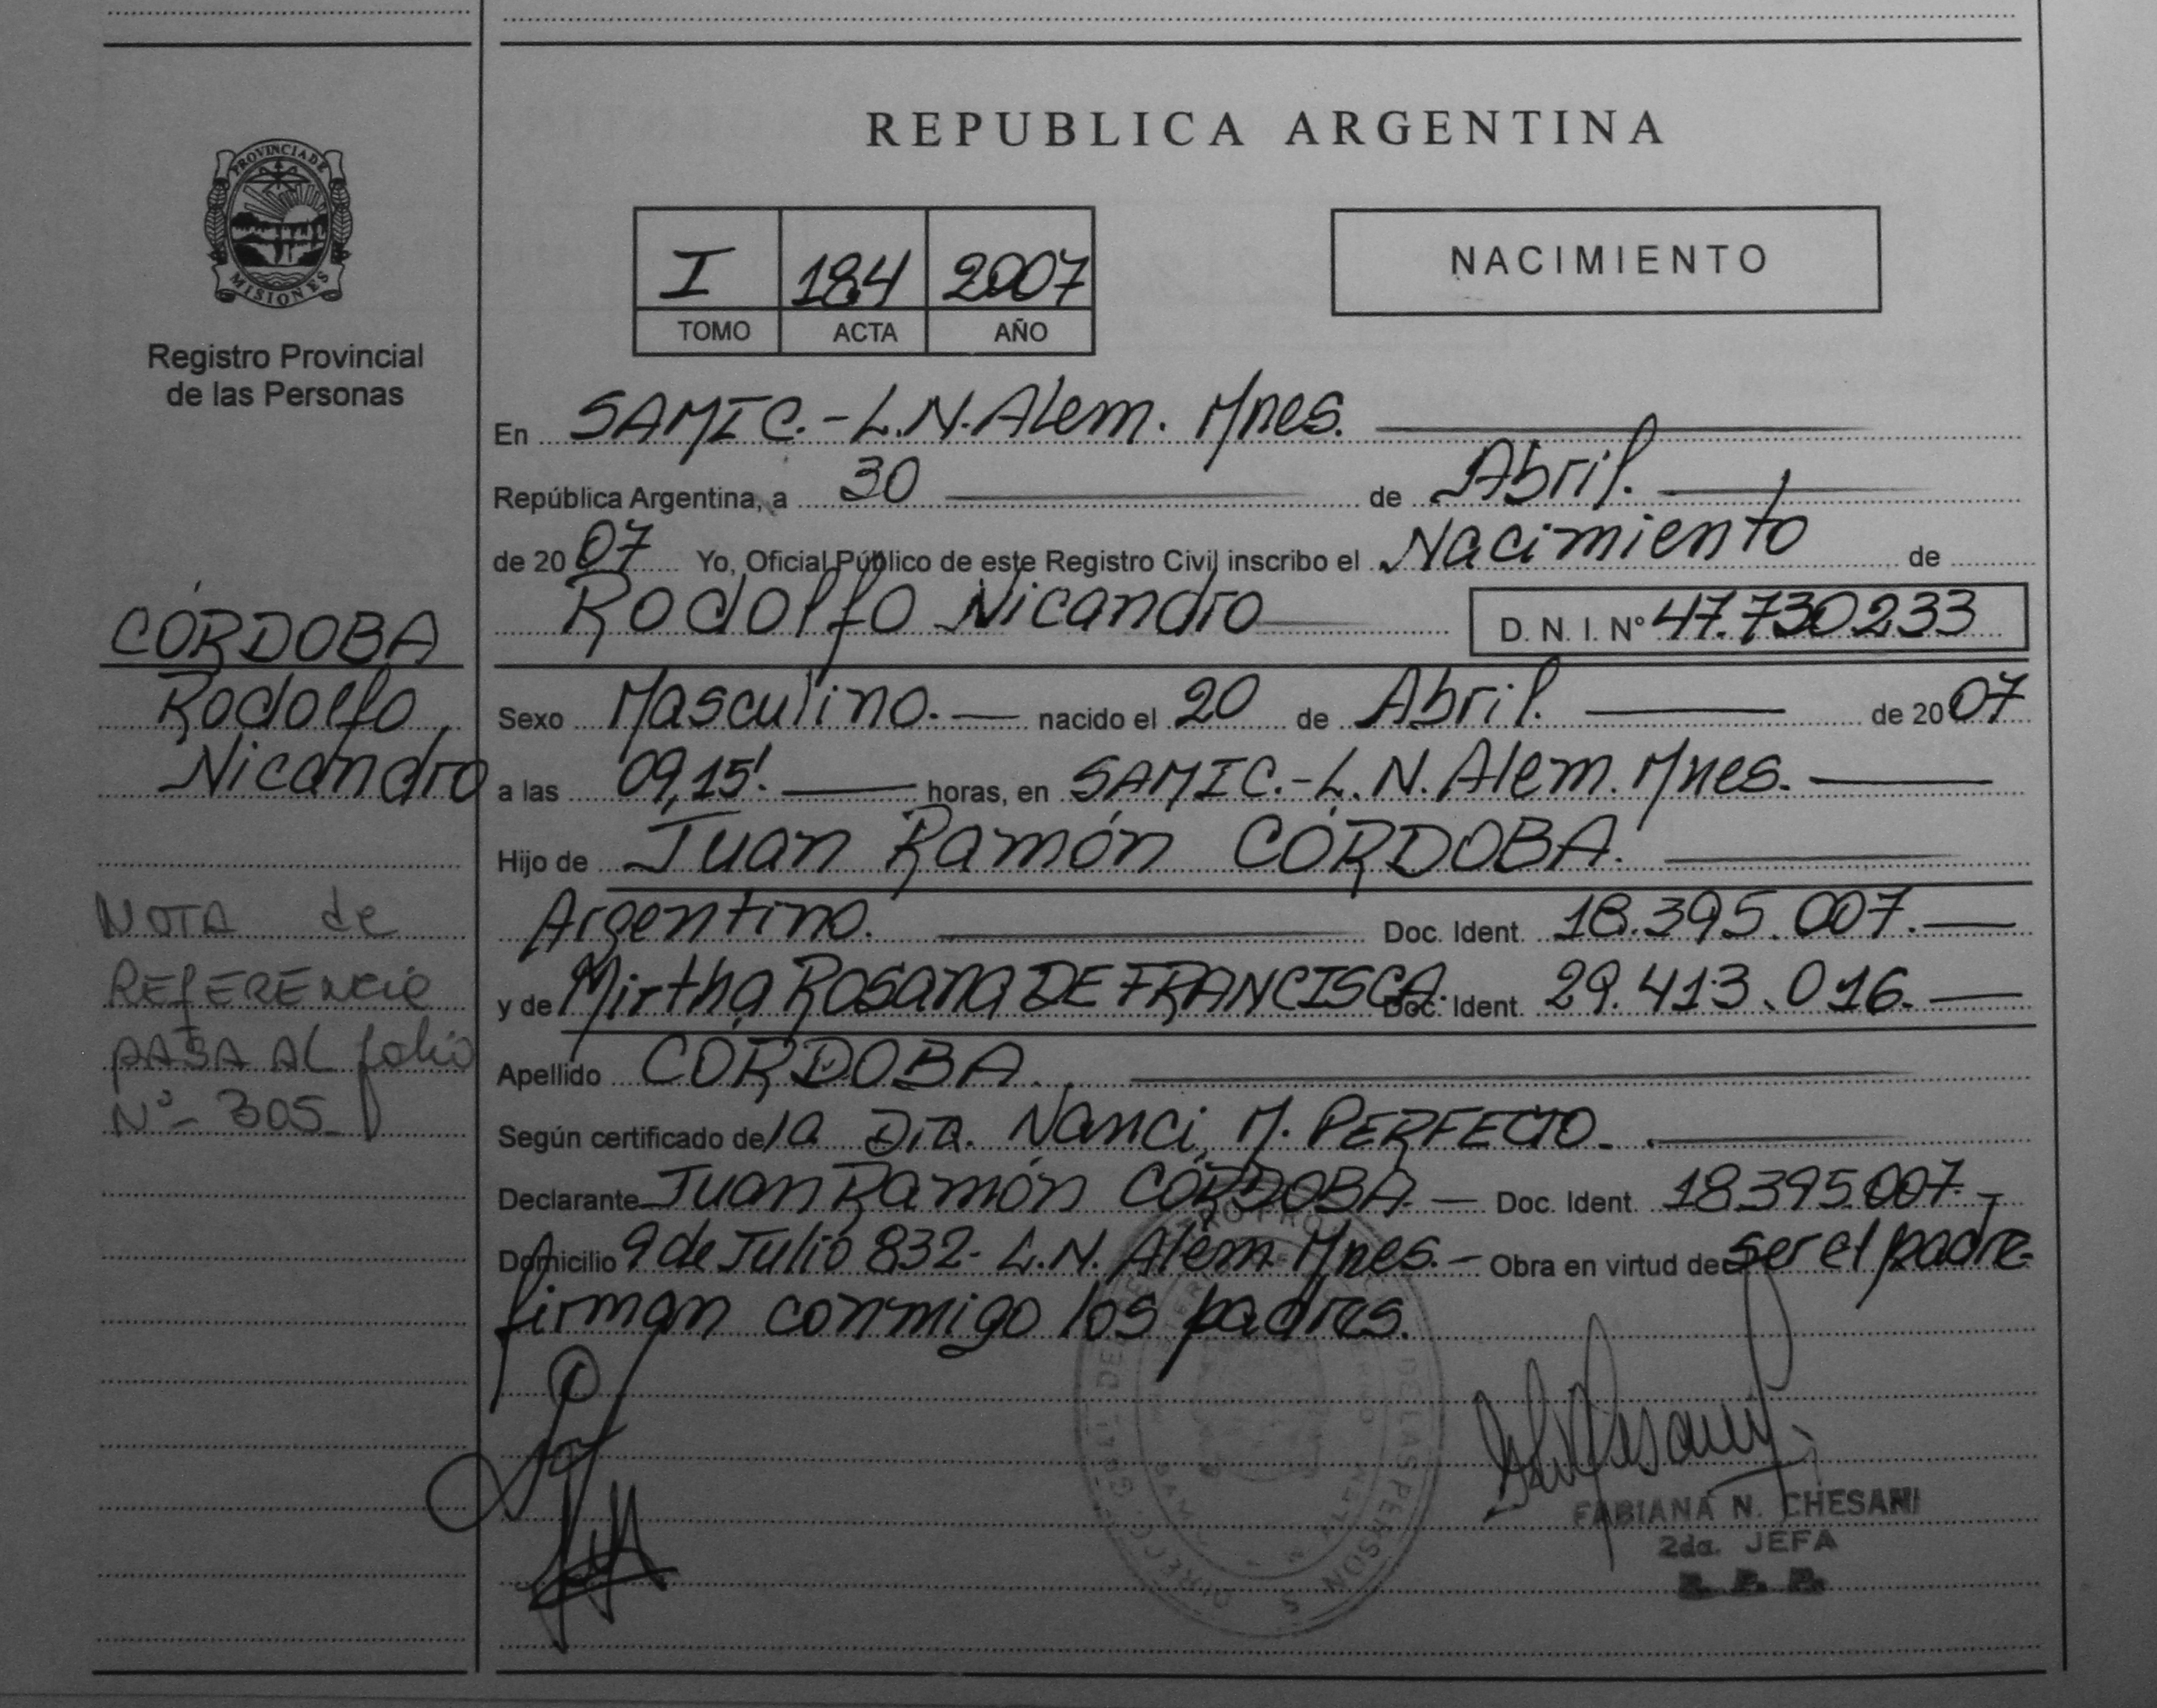 REPUBLICA ARGENTINA
PROVINCIA DE
MISIONES
Registro Provincial
de las Personas
I 184 2007
TOMO ACTA AÑO
NACIMIENTO
En SAMIC.-L.N.Alem. Mnes.
República Argentina, a 30 de Abril.
de 2007 Yo, Oficial Público de este Registro Civil inscribo el Nacimiento de
Rodolfo Nicandro D. N. I. Nº 47.730233
CÓRDOBA
Rodolfo
Nicandro
Sexo Masculino. nacido el 20 de Abril. de 2007
a las 09,15'. horas, en SAMIC.-L.N.Alem. Mnes.
Hijo de Juan Ramón CÓRDOBA.
Argentino. Doc. Ident. 18.395.007.
y de Mirtha Rosana DE FRANCISCA. Doc. Ident. 29.413.016.
NOTA de
REfERENcia
PASA AL folio
Nº- 305
Apellido CÓRDOBA.
Según certificado de la Dra. Nanci M. PERFECTO.
Declarante Juan Ramón CÓRDOBA Doc. Ident. 18395.007.
Domicilio 9 de Julio 832- L.N. Alem. Mnes. Obra en virtud de ser el padre
firman conmigo los padres.
DE LAS PERSONAS
FABIANA N. CHESANI
2da. JEFA
R. P. P.